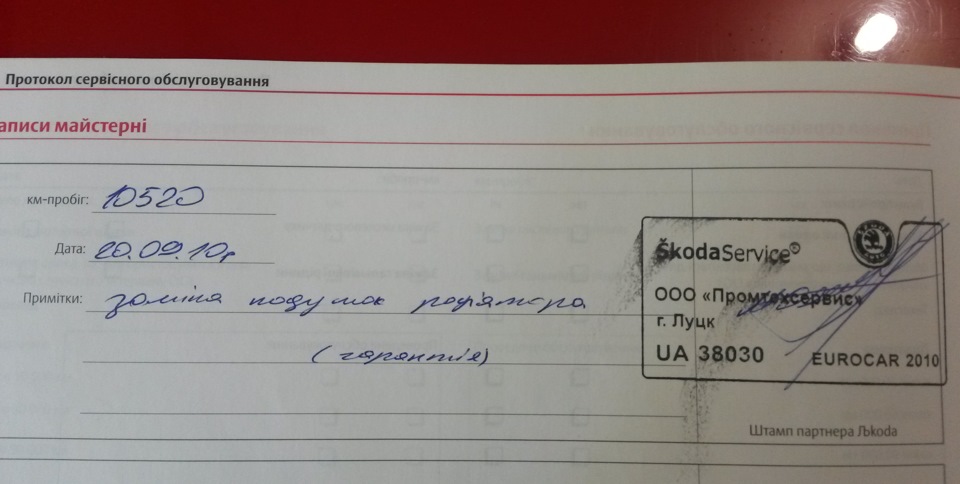 Протокол сервісного обслуговування
аписи майстерні
км-пробіг: 10520
Дата: 20.09.10р
Примітки: заміна подушок радіатора
(гарантія)
ŠkodaService®
ООО «Промтехсервис»
г. Луцк
UA 38030 EUROCAR 2010
Штамп партнера Љkoda